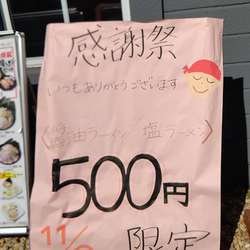 感謝祭
いつもありがとうございます
醤油ラーメン 塩ラーメン
500円
11/
限定